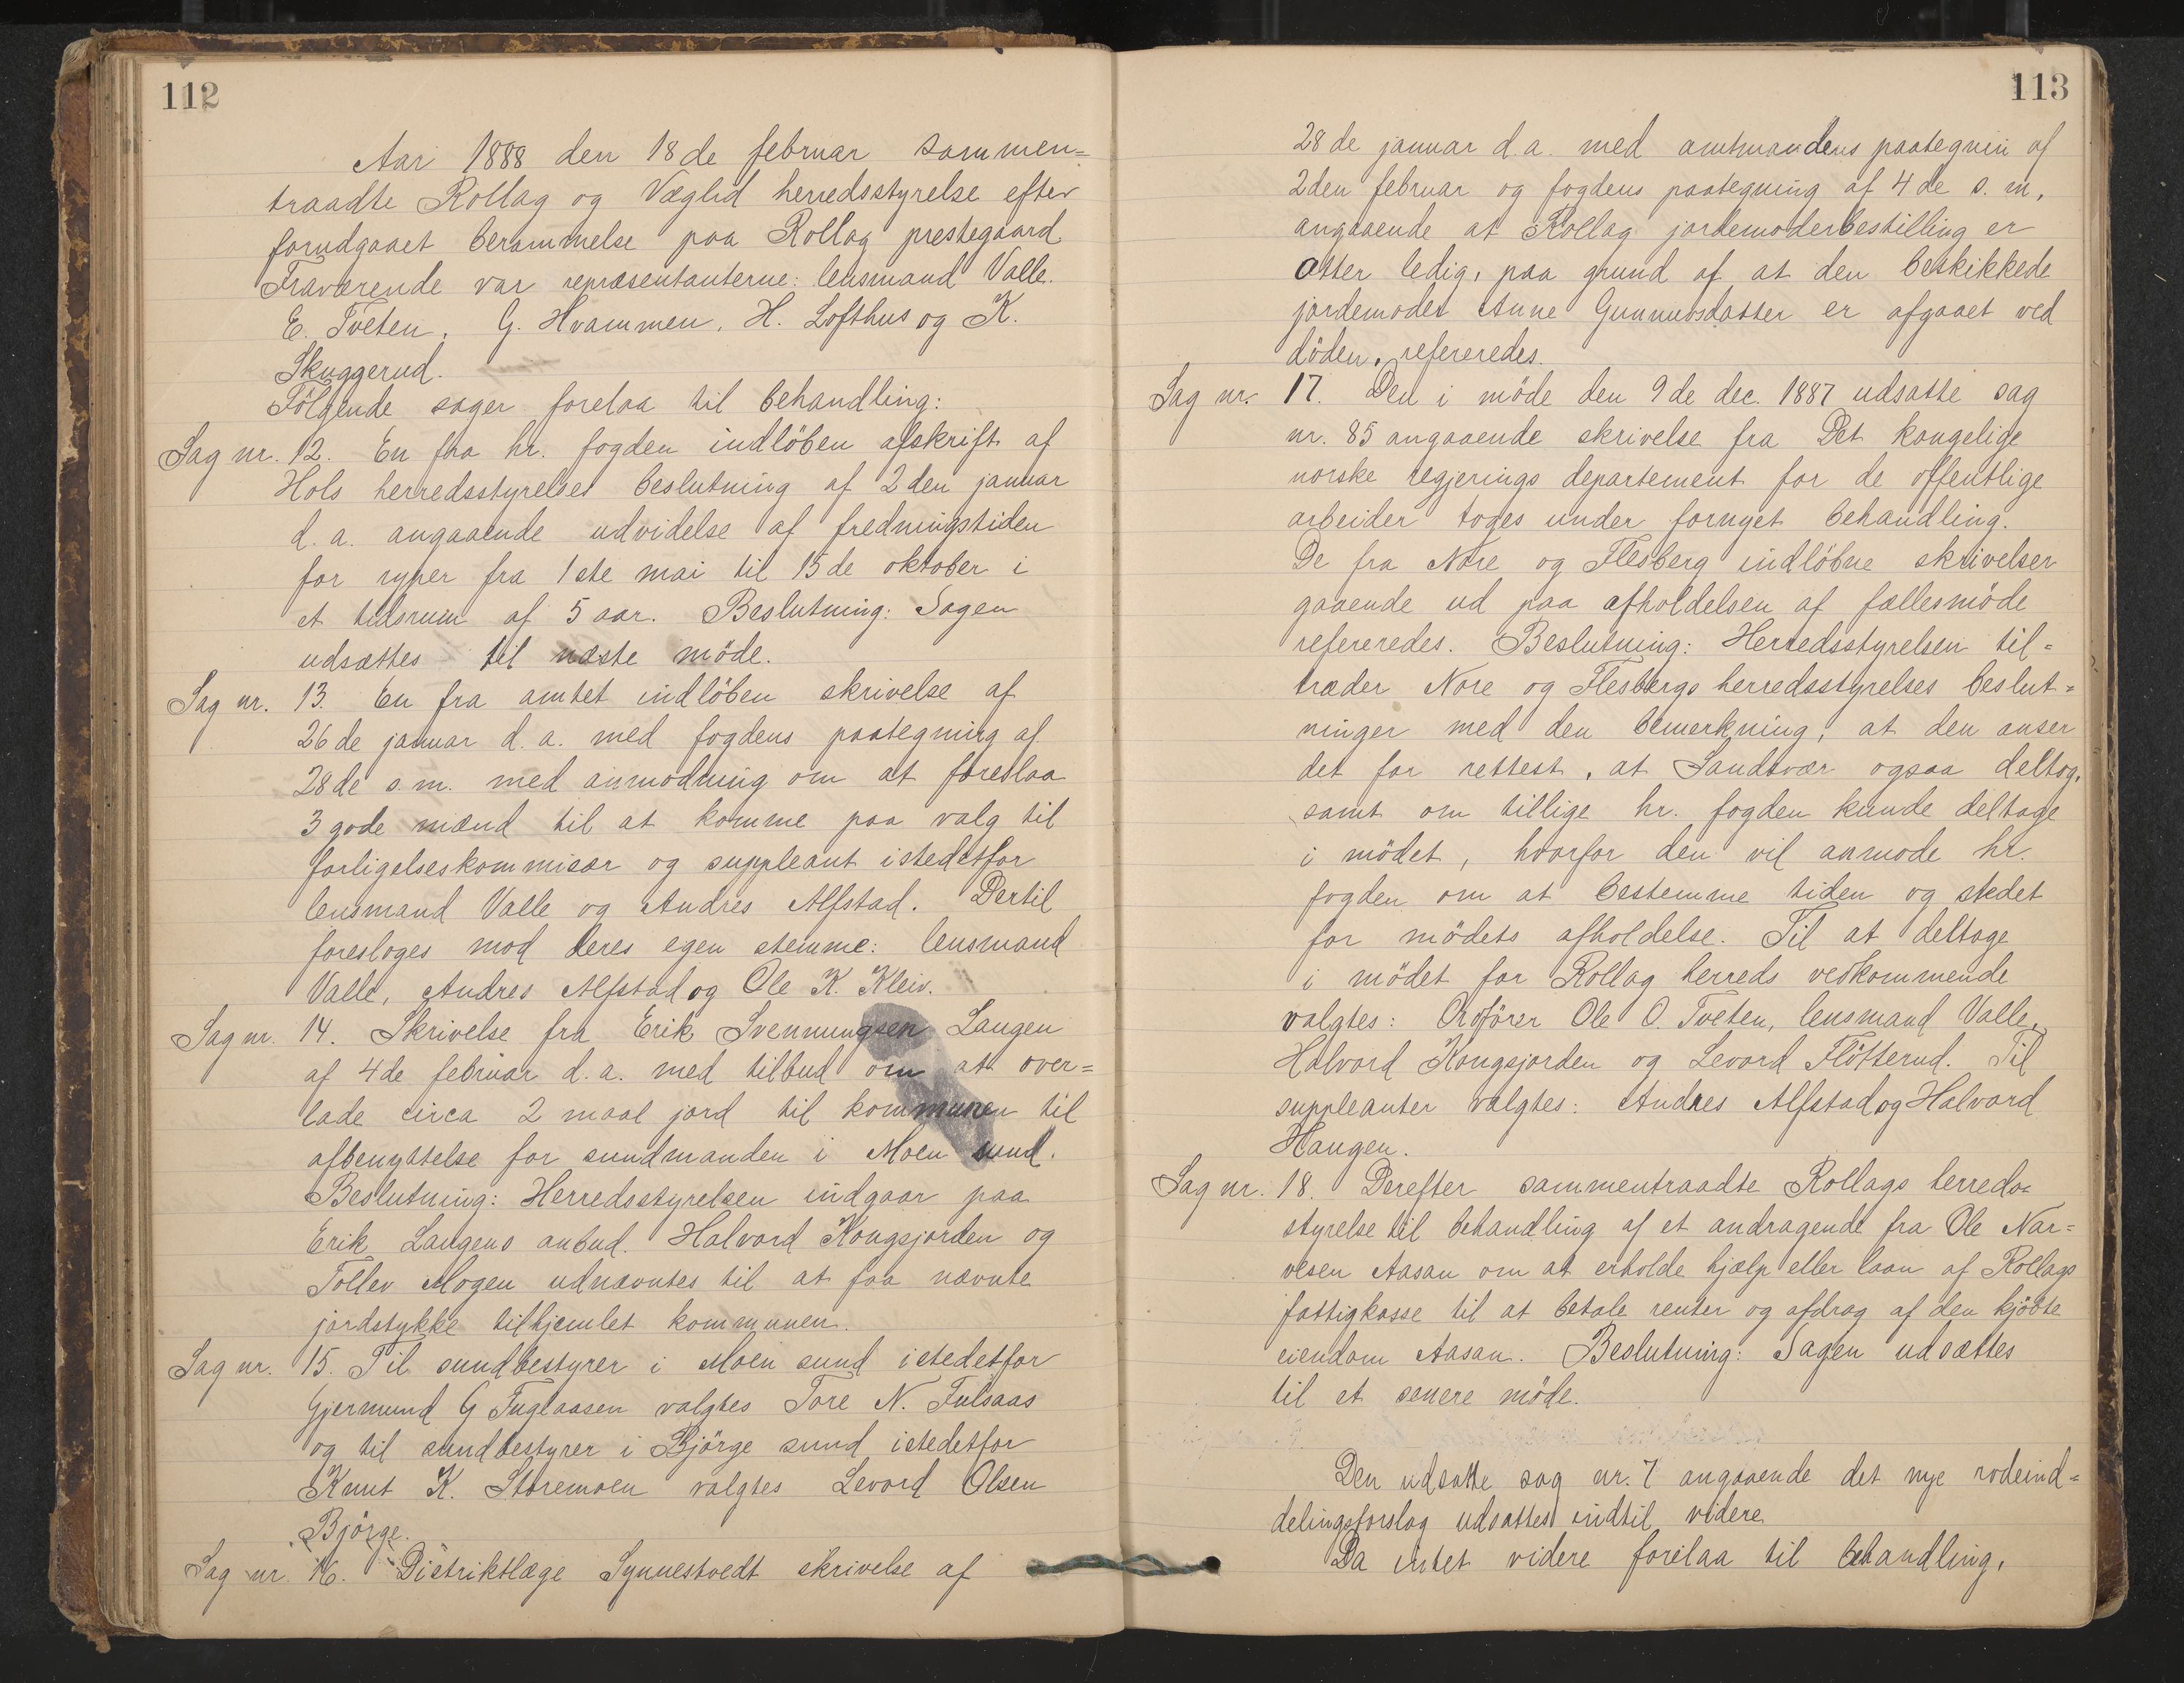 112
Aar 1888 den 18de februar sammen=
traadte Rollag og Væglid herredsstyrelse efter
forudgaaet berammelse paa Rollag prestegaard.
Fraværende var repræsentanterne: lensmand Valle.
E. Tveten, G. Hvammen, H. Lofthus og K.
Skuggerud.
Följende sager forelaa til behandling:
Sag nr. 12. En fra hr. fogden indlöben afskrift af
Hols herredsstyrelses beslutning af 2den januar
d. a. angaaende udvidelse af fredningstiden
for ryper fra 1ste mai til 15de oktober i
et tidsrum af 5 aar. Beslutning: Sagen
udsættes til næste möde.
Sag nr. 13. En fra amtet indlöben skrivelse af
26de januar d. a. med fogdens paategning af
28de s. m. med anmodning om at foreslaa
3 gode mænd til at komme paa valg til
forligelseskommisær og suppleant istedetfor
lensmand Valle og Andres Alfstad. Dertil
foresloges mod deres egen stemme: lensmand
Valle, Andres Alfstad og Ole K. Kleiv.
Sag nr. 14. Skrivelse fra Erik Svennungsen Laugen
af 4de februar d. a. med tilbud om at over=
lade circa 2 maal jord til kommunen til
afbenyttelse for sundmanden i Moen sund.
Beslutning: Herredsstyrelsen indgaar paa
Erik Laugens anbud. Halvord Kongsjorden og
Tollev Mogen udnævntes til at faa nævnte
jordstykke tilhjemlet kommunen.
Sag nr. 15. Til sundbestyrer i Moen sund istedetfor
Gjermund G Fuglaasen valgtes Tore N. Fulsaas
og til sundbestyrer i Björge sund istedetfor
Knut K. Storemoen valgtes Levord Olsen
Björge.
Sag nr. 16. Distriktlæge Synnestvedt skrivelse af
113
28de januar d. a. med amtmandens paategnin af
2den februar og fogdens paategning af 4de s. m.
angaaende at Rollag jordemoderbestilling er
atter ledig, paa grund af at den beskikkede
jordemoder Anne Gunnulsdatter er afgaaet ved
döden, refereredes.
Sag nr. 17. Den i möde den 9de dec. 1887 udsatte sag
nr. 85 angaaende skrivelse fra Det kongelige
norske regjerings departement for de offentlige
arbeider toges under fornyet behandling.
De fra Nore og Flesberg indlöbne skrivelser
gaaende ud paa afholdelsen af fællesmöde
refereredes. Beslutning: Herredsstyrelsen til=
træder Nore og Flesbergs herredsstyrelses beslut=
ninger med den bemerkning, at den anser
det for rettest, at Sandsvær ogsaa deltog,
samt om tillige hr. fogden kunde deltage
i mödet, hvorfor den vil anmode hr.
fogden om at bestemme tiden og stedet
for mödets afholdelse. Til at deltage
i mödet for Rollag herreds vedkommende
valgtes: Ordförer Ole O. Tveten, lensmand Valle,
Halvord Kongsjorden og Levord Flötterud. Til
suppleanter valgtes: Andres Alfstad og Halvord
Haugen.
Sag nr. 18. Derefter sammentraadte Rollags herreds=
styrelse til behandling af et andragende fra Ole Nar=
vesen Aasan om at erholde hjælp eller laan af Rollags
fattigkasse til at betale renter og afdrag af den kjöbte
eiendom Aasan. Beslutning: Sagen udsættes
til et senere möde.
Den udsatte sag nr. 7 angaaende det nye rodeind=
delingsforslag udsattes indtil videre
Da intet videre forelaa til behandling,